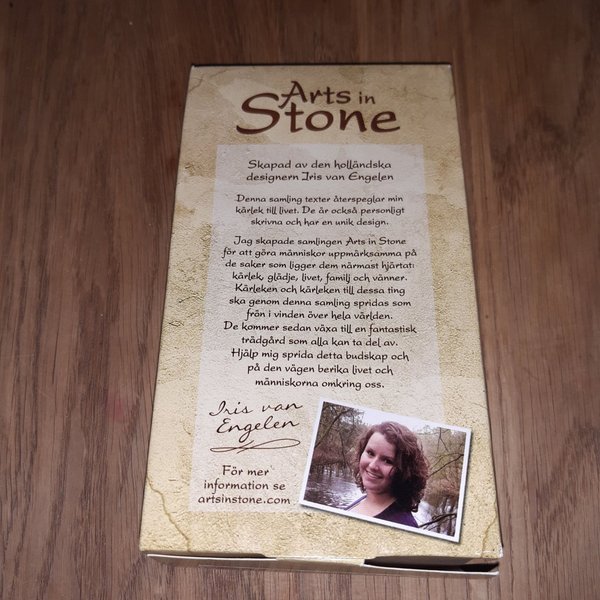 Arts in
Stone
Skapad av den holländska
designern Iris van Engelen
Denna samling texter återspeglar min
kärlek till livet. De är också personligt
skrivna och har en unik design.
Jag skapade samlingen Arts in Stone
för att göra människor uppmärksamma på
de saker som ligger dem närmast hjärtat:
kärlek, glädje, livet, familj och vänner.
Kärleken och kärleken till dessa ting
ska genom denna samling spridas som
frön i vinden över hela världen.
De kommer sedan växa till en fantastisk
trädgård som alla kan ta del av.
Hjälp mig sprida detta budskap och
på den vägen berika livet och
människorna omkring oss.
Iris van
Engelen
För mer
information se
artsinstone.com